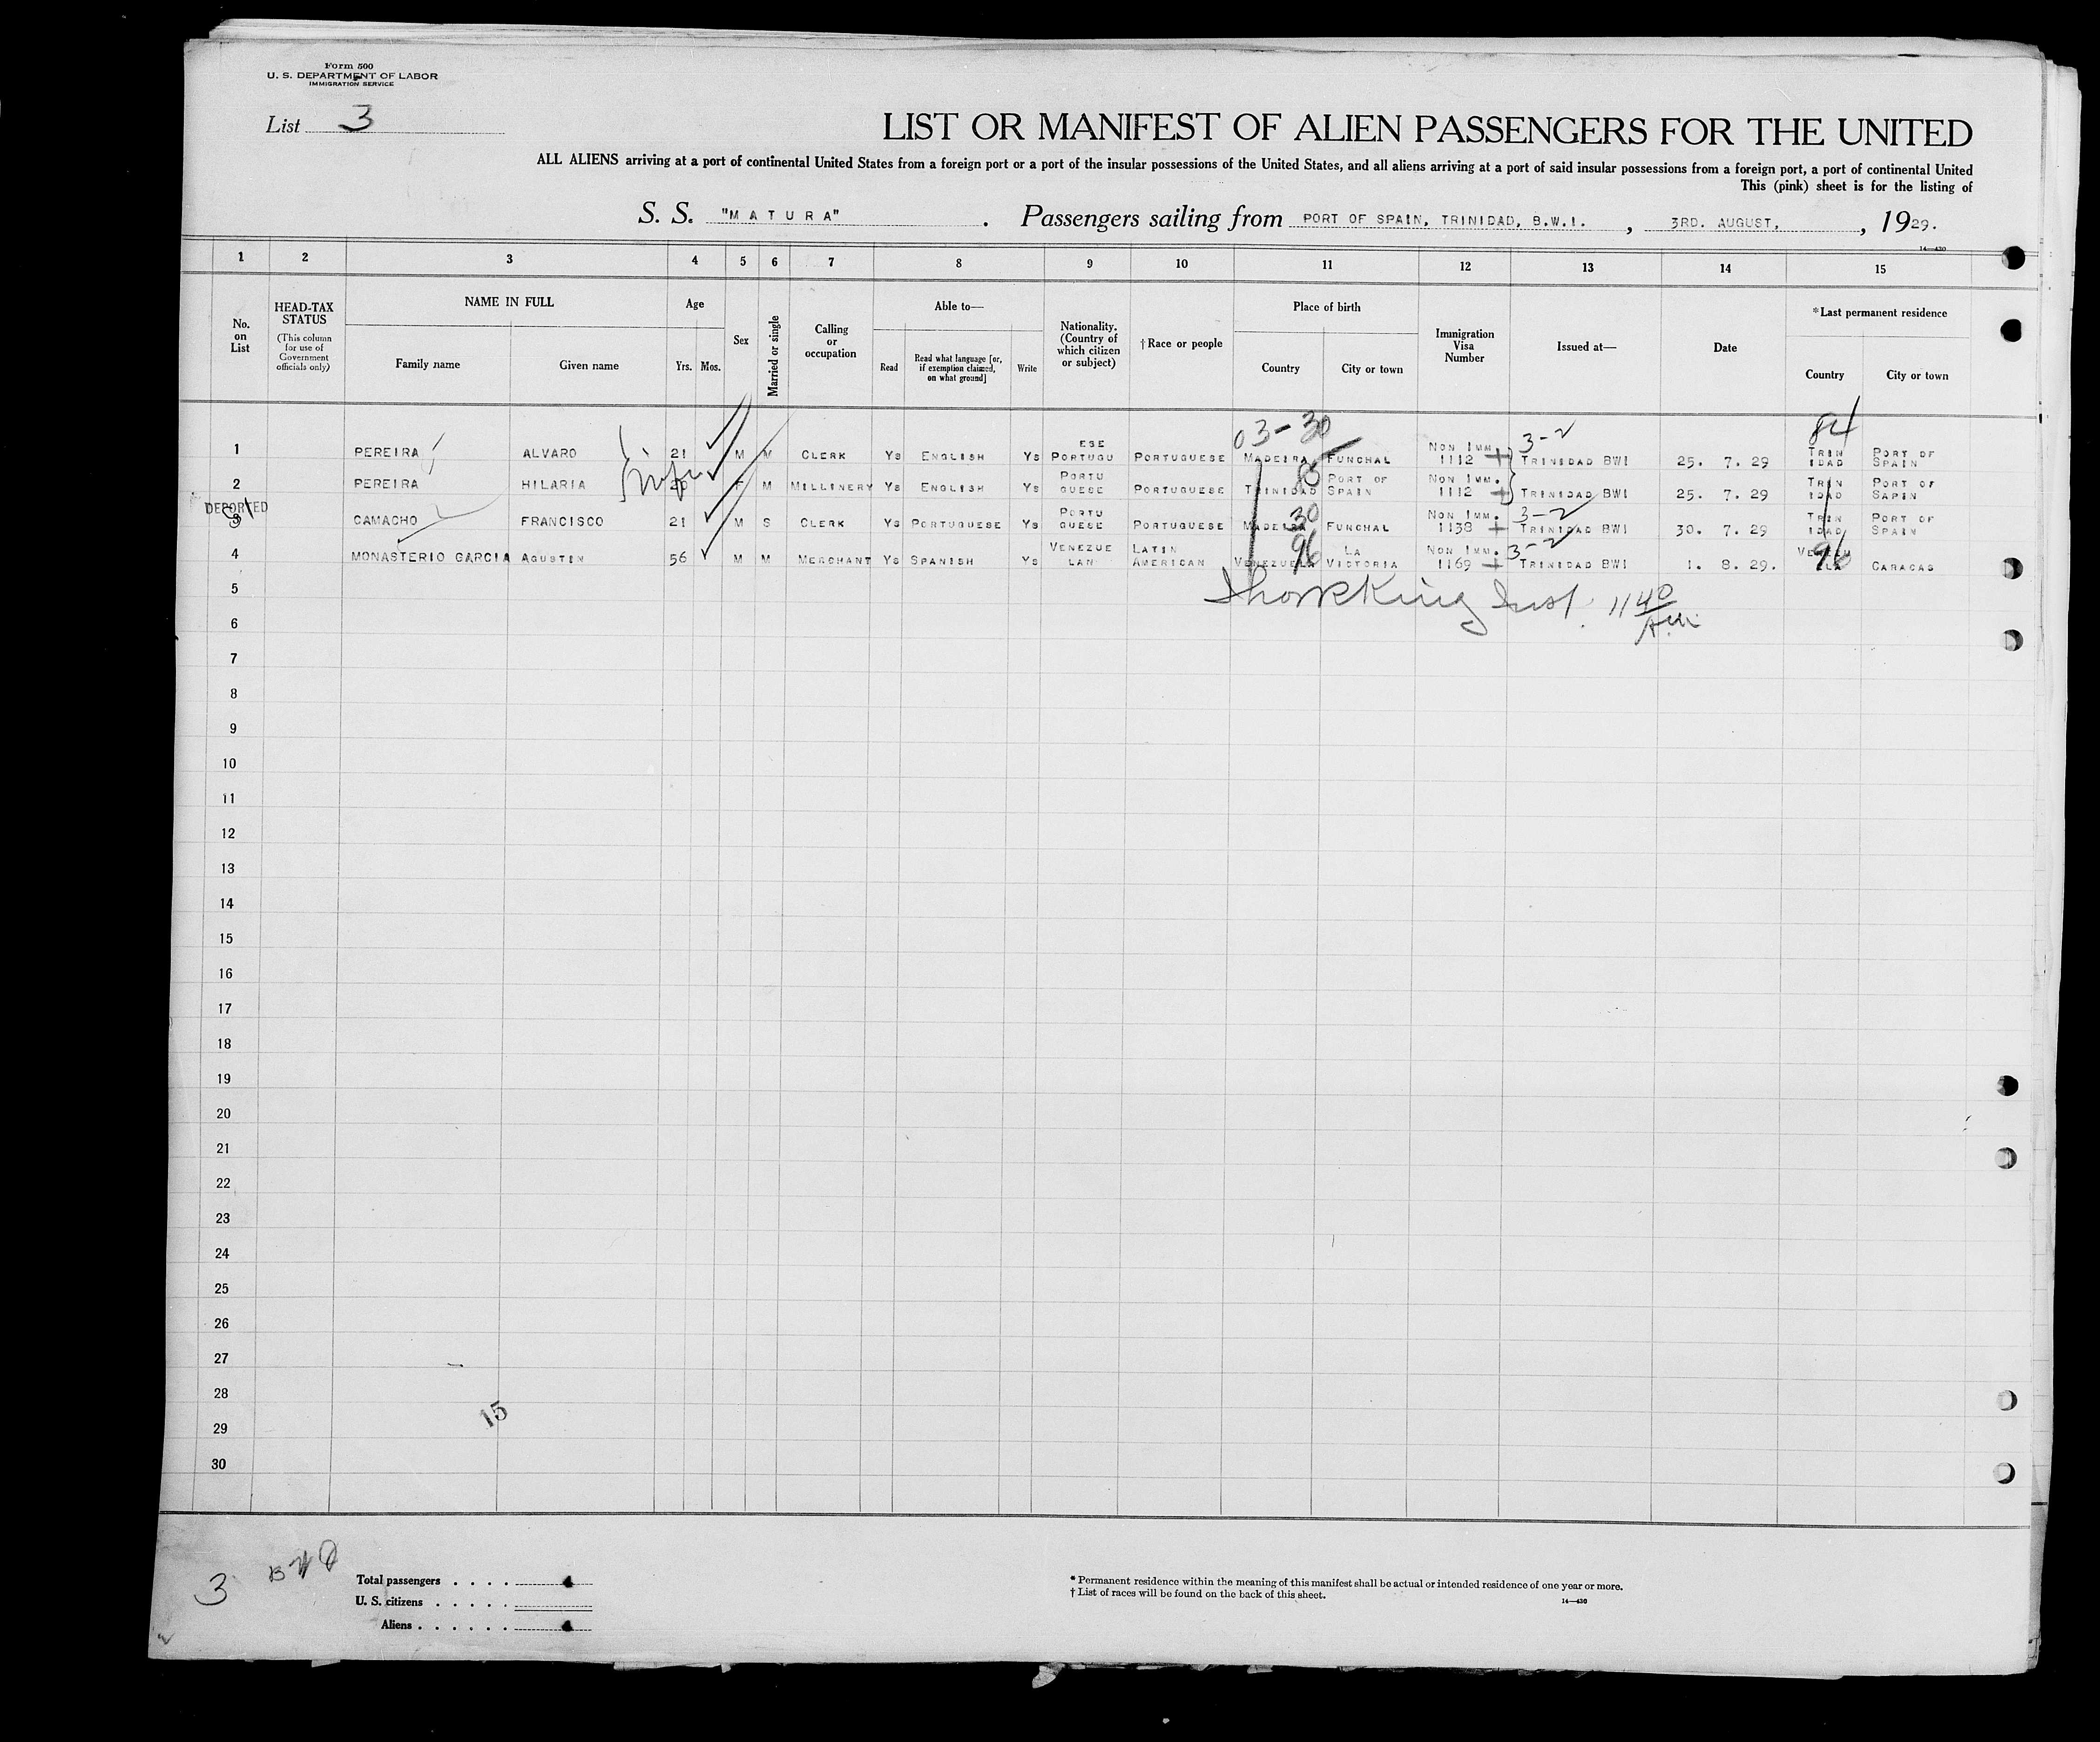 Form 500
U. S. DEPARTMENT OF LABOR
IMMIGRATION SERVICE
List 3
LIST OR MANIFEST OF ALIEN PASSENGERS FOR THE UNITED
ALL ALIENS arriving at a port of continental United States from a foreign port or a port of the insular possessions of the United States, and all aliens arriving at a port of said insular possessions from a foreign port, a port of continental United
This (pink) sheet is for the listing of
S. S. "MATURA" . Passengers sailing from PORT OF SPAIN, TRINIDAD, B.W.I. , 3RD. AUGUST, , 1929.
14—430
1 2 3 4 5 6 7 8 9 10 11 12 13 14 15
No. on List
HEAD-TAX STATUS
(This column for use of Government officials only)
NAME IN FULL
Family name
Given name
Age
Yrs. Mos.
Sex
Married or single
Calling or occupation
Able to—
Read
Read what language [or, if exemption claimed, on what ground]
Write
Nationality. (Country of which citizen or subject)
†Race or people
Place of birth
Country
City or town
Immigration Visa Number
Issued at—
Date
*Last permanent residence
Country
City or town
03-30
3-2
84
1 PEREIRA ALVARO 21 M M CLERK Ys ENGLISH Ys PORTUGU ESE PORTUGUESE MADEIRA FUNCHAL NON IMM. 1112 TRINIDAD BWI 25. 7. 29 TRIN IDAD PORT OF SPAIN
2 PEREIRA HILARIA F M MILLINERY Ys ENGLISH Ys PORTU GUESE PORTUGUESE TRINIDAD PORT OF SPAIN NON IMM. 1112 TRINIDAD BWI 25. 7. 29 TRIN IDAD PORT OF SAPIN
DEPORTED
3 CAMACHO FRANCISCO 21 M S CLERK Ys PORTUGUESE Ys PORTU GUESE PORTUGUESE MADEIRA 30 FUNCHAL NON IMM. 1138 3-2 TRINIDAD BWI 30. 7. 29 TRIN IDAD PORT OF SPAIN
4 MONASTERIO GARCIA AGUSTIN 56 M M MERCHANT Ys SPANISH Ys VENEZUE LAN LATIN AMERICAN VENEZUELA 96 LA VICTORIA NON IMM. 1169 3-2 TRINIDAD BWI 1. 8. 29. VENEZU ELA 96 CARACAS
5
11 40
6
7
8
9
10
11
12
13
14
15
16
17
18
19
20
21
22
23
24
25
26
27
28
15
29
30
3
Total passengers . . . . 4
U. S. citizens . . . . .
Aliens . . . . . . 4
* Permanent residence within the meaning of this manifest shall be actual or intended residence of one year or more.
† List of races will be found on the back of this sheet.
14—430